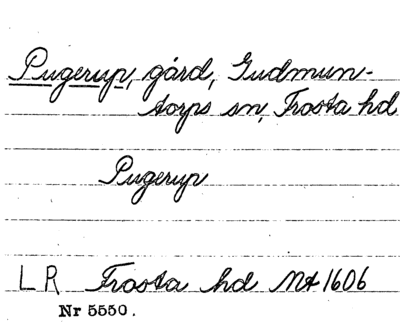 Pugerup, gård, Gudmun-
torps sn, Frosta hd
Pugerup
LR Frosta hd Mt 1606
Nr 5550.